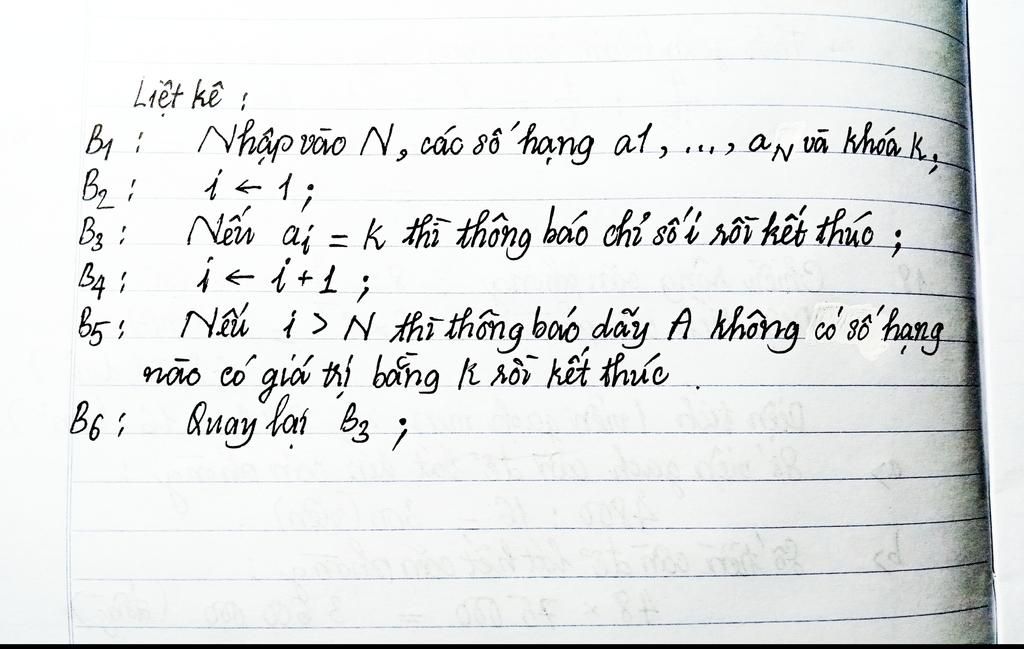 Liệt kê :
B1 : Nhập vào N, các số hạng a1, ..., aN và khóa k;
B2 : i ← 1 ;
B3 : Nếu ai = k thì thông báo chỉ số i rồi kết thúc ;
B4 : i ← i + 1 ;
B5 : Nếu i > N thì thông báo dãy A không có số hạng
nào có giá trị bằng k rồi kết thúc .
B6 : Quay lại B3 ;